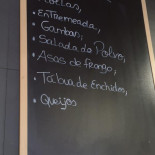 • Entremeada,
• Gambas,
• Salada de Polvo,
• Asas de frango,
• Tábua de Enchidos,
• Queijos